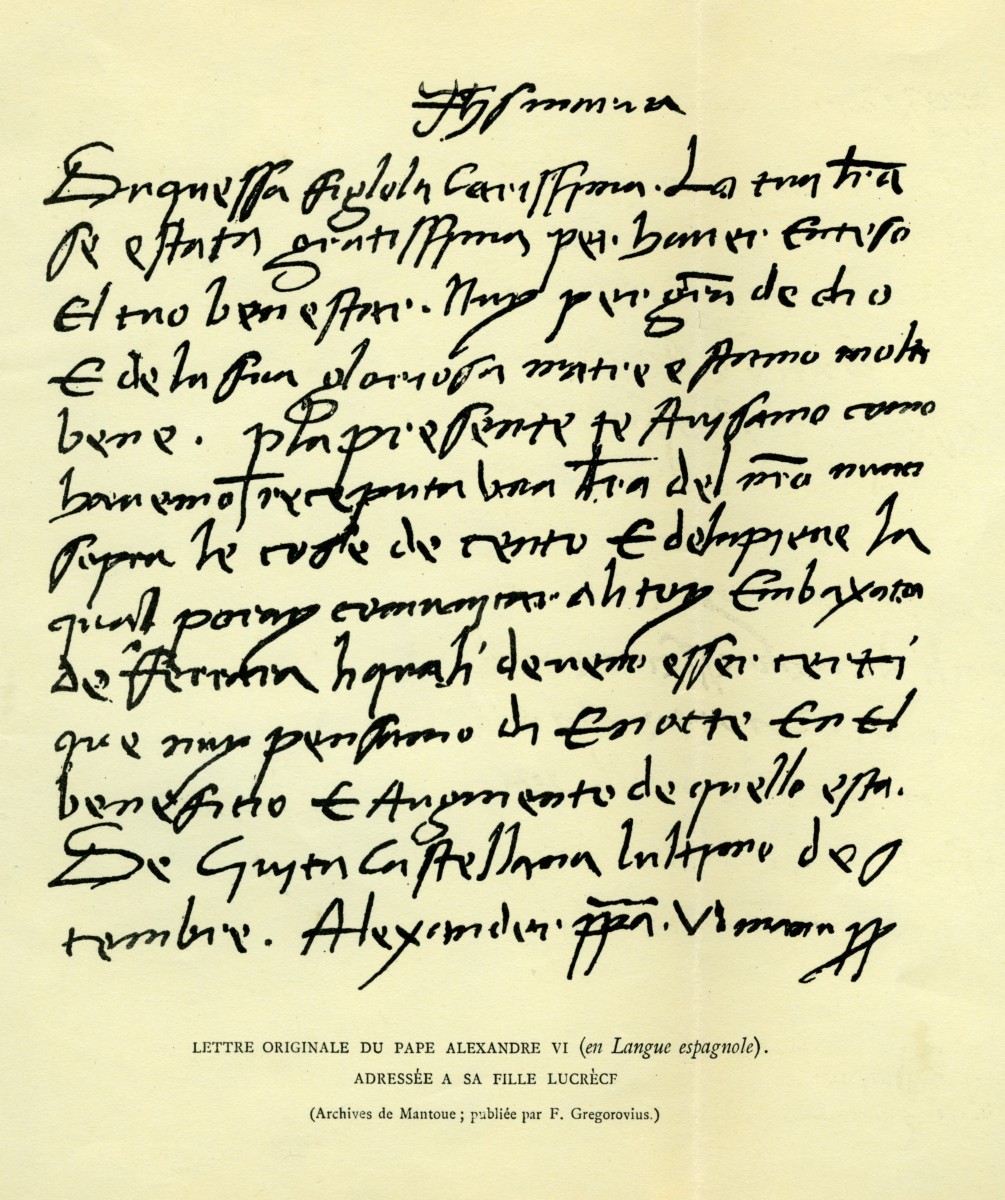 Jhs maria
Duquessa figlola Carissima. La tua lr̃a
se estata gratissima per haver Enteso
El tuo benestar. Nuy per gr̃a de dio
E de la sua gloriosa matre estamo molt
bene. pla presente te Avysamo como
havemo receputa una lr̃a del nr̃o nunci
sopra le cose de cento E delapieve la
qual poray comunicar ali toy Embaxata
de fferrara li quali deveno esser certi
que nuy pensamo di Enotte En El
beneficio E Augmento de quello esta.
De Civita Castellana lultimo de
tembre. Alexander pp̃a. VI manu pp
LETTRE ORIGINALE DU PAPE ALEXANDRE VI (en Langue espagnole).
ADRESSÉE A SA FILLE LUCRÈCE
(Archives de Mantoue ; publiée par F. Gregorovius.)